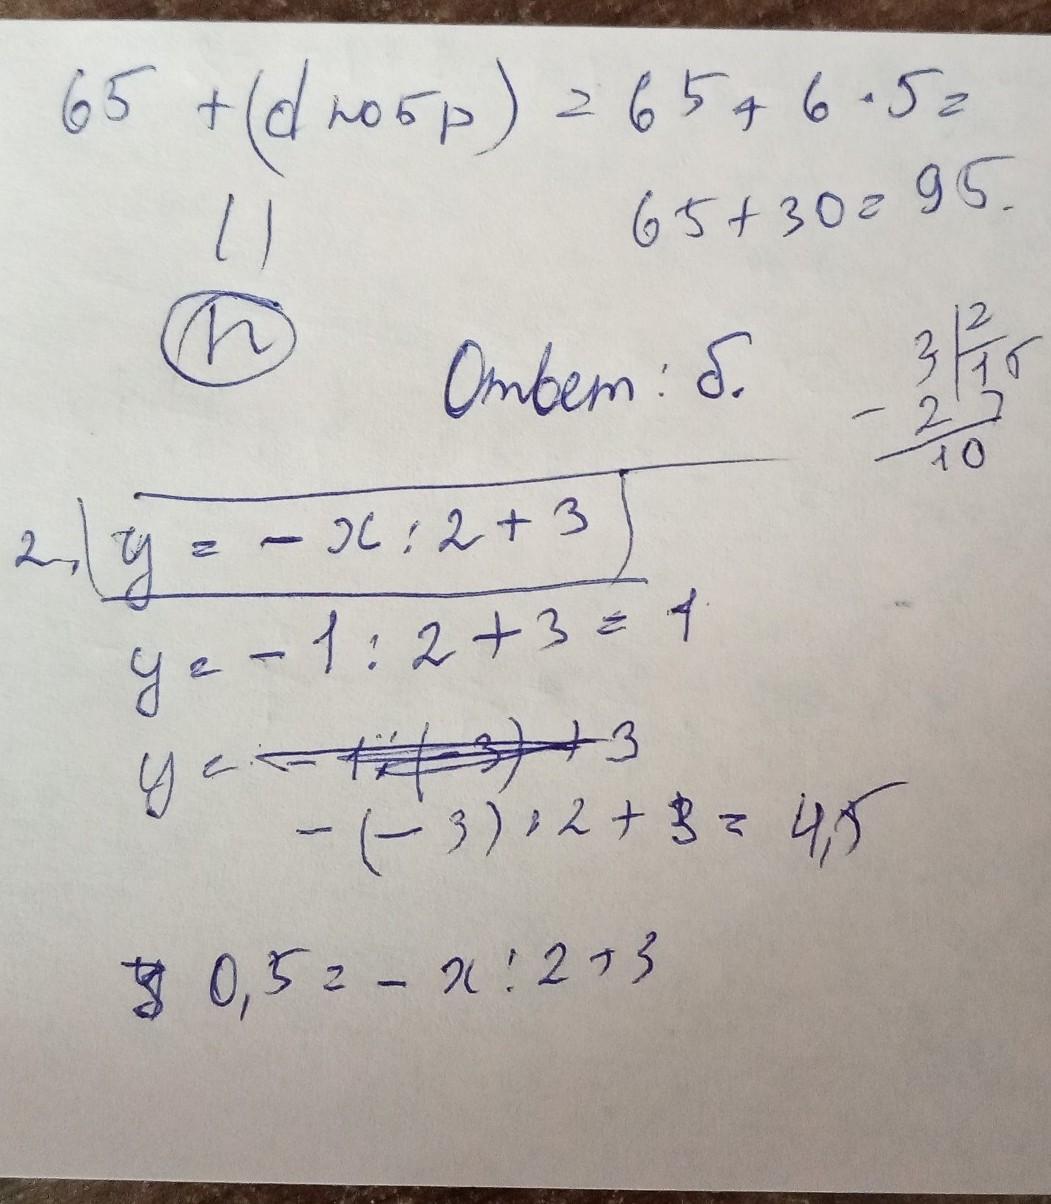 65 + (d нобр) = 65 + 6 · 5 =
65 + 30 = 95.
Ответ: б.
3 | 2
- 2 | 1,5
10
2. y = - x : 2 + 3
y = - 1 : 2 + 3 = 1
y =
- (- 3) : 2 + 3 = 4,5
0,5 = - x : 2 + 3